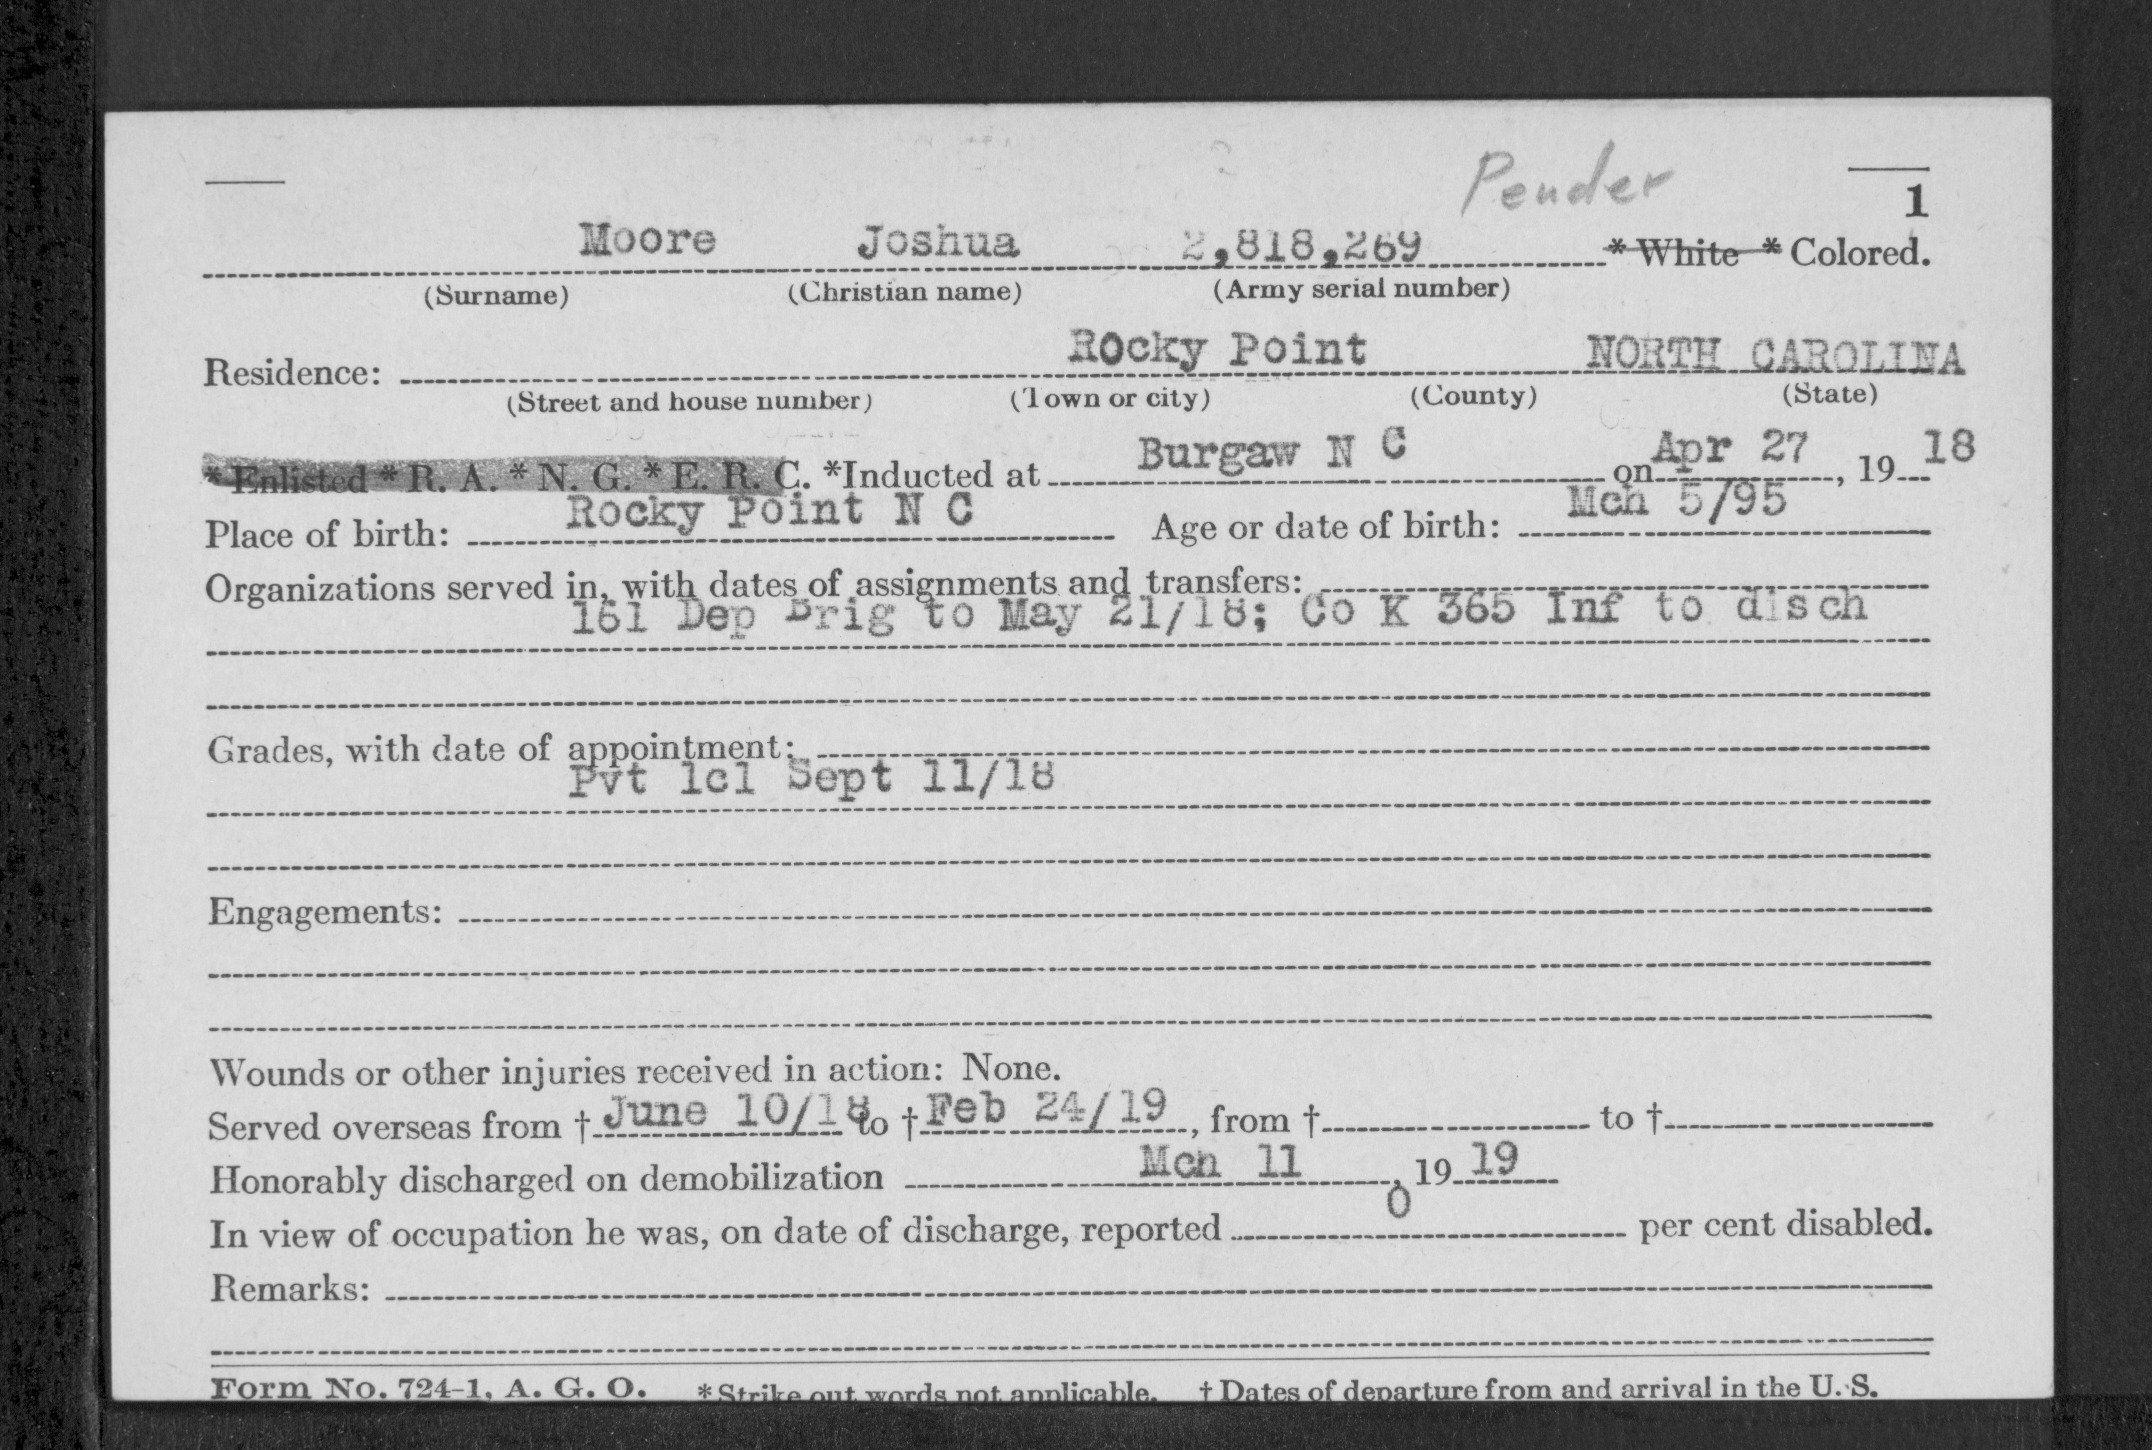 Pender
1
Moore Joshua 2,818,269 * White * Colored.
(Surname) (Christian name) (Army serial number)
Residence: Rocky Point NORTH CAROLINA
(Street and house number) (Town or city) (County) (State)
* Enlisted * R. A. * N. G. * E. R. C. *Inducted at Burgaw N C on Apr 27, 19 18
Place of birth: Rocky Point N C Age or date of birth: Mch 5/95
Organizations served in, with dates of assignments and transfers:
161 Dep Brig to May 21/18; Co K 365 Inf to disch
Grades, with date of appointment:
Pvt 1cl Sept 11/18
Engagements:
Wounds or other injuries received in action: None.
Served overseas from † June 10/18 to † Feb 24/19, from † to †
Honorably discharged on demobilization Mch 11, 19 19
In view of occupation he was, on date of discharge, reported 0 per cent disabled.
Remarks:
Form No. 724-1, A. G. O. * Strike out words not applicable. † Dates of departure from and arrival in the U. S.